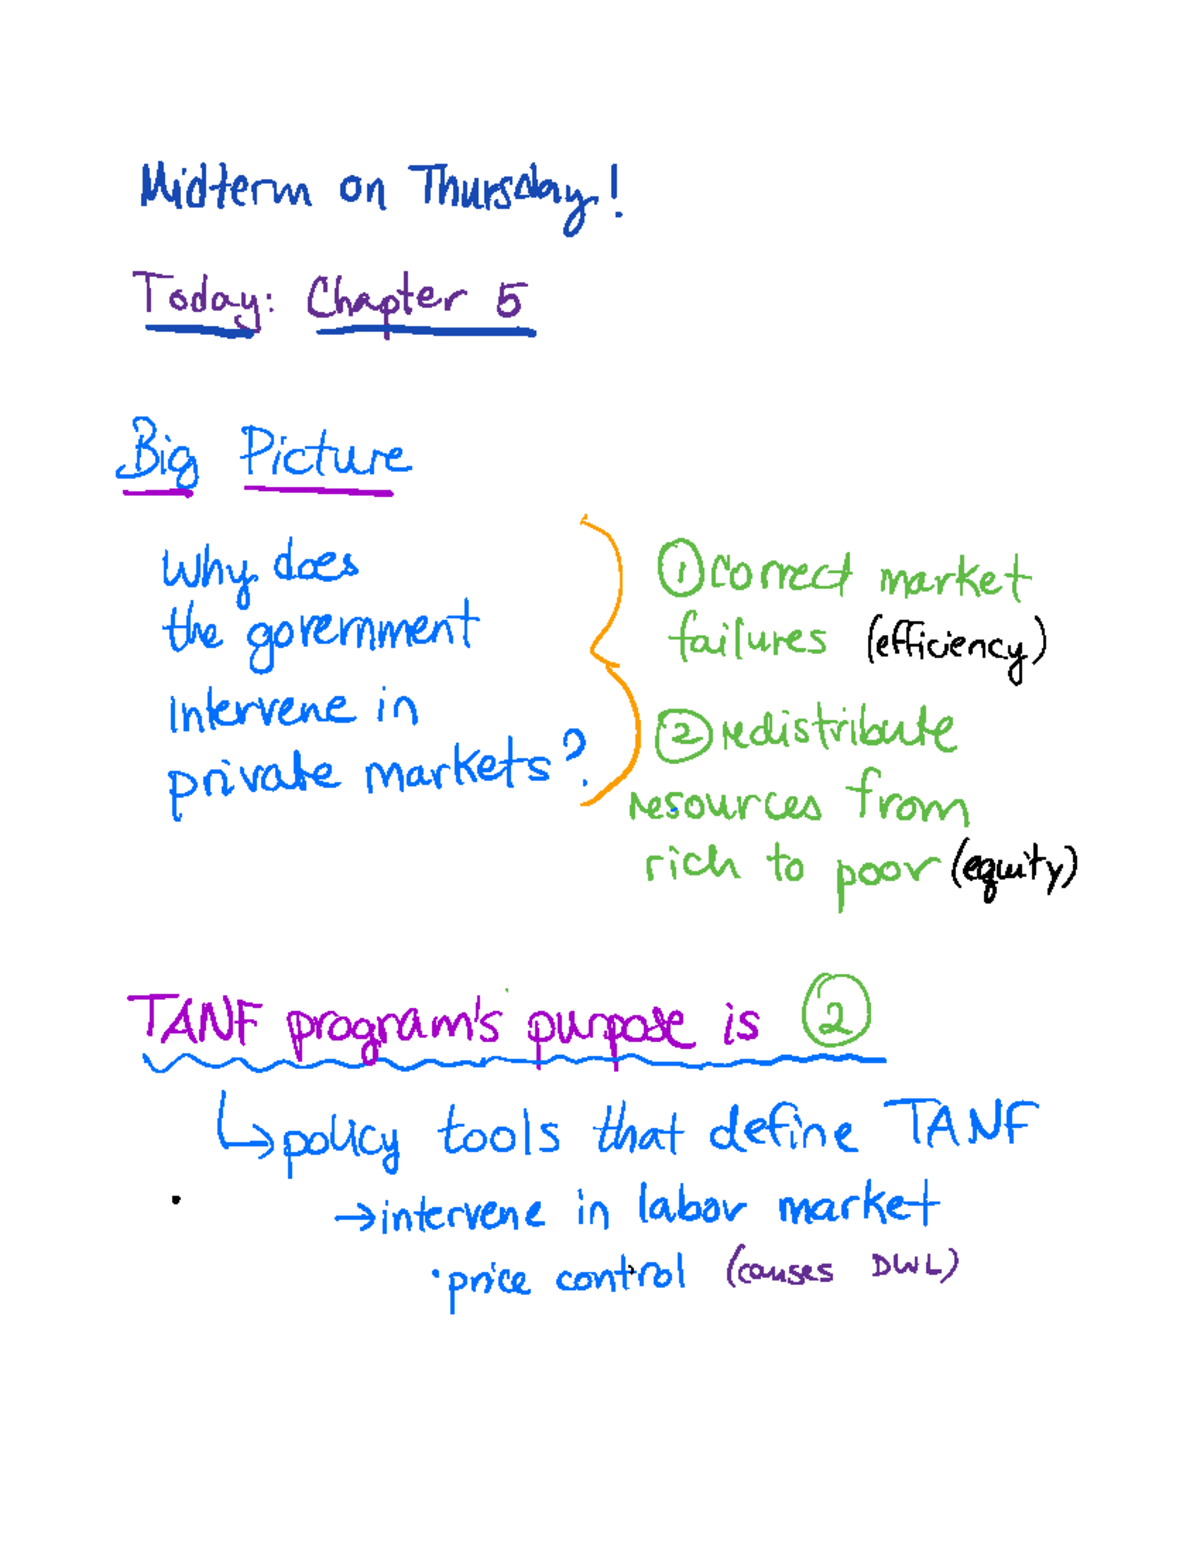 Midterm on Thursday!
Today: Chapter 5
Big Picture
Why does
the government
intervene in
private markets?
① correct market
failures (efficiency)
② redistribute
resources from
rich to poor (equity)
TANF program's purpose is ②
↳ policy tools that define TANF
→ intervene in labor market
• price control (causes DWL)